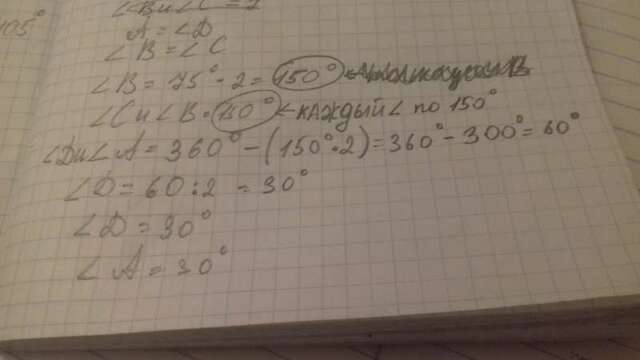 105°
∠B и ∠C = ?
A = ∠D
∠B = ∠C
∠B = 75° · 2 = 150°
∠C и ∠B = 150° ← КАЖДЫЙ ∠ по 150°
∠D и ∠A = 360° - (150° · 2) = 360° - 300° = 60°
∠D = 60 : 2 = 30°
∠D = 30°
∠A = 30°